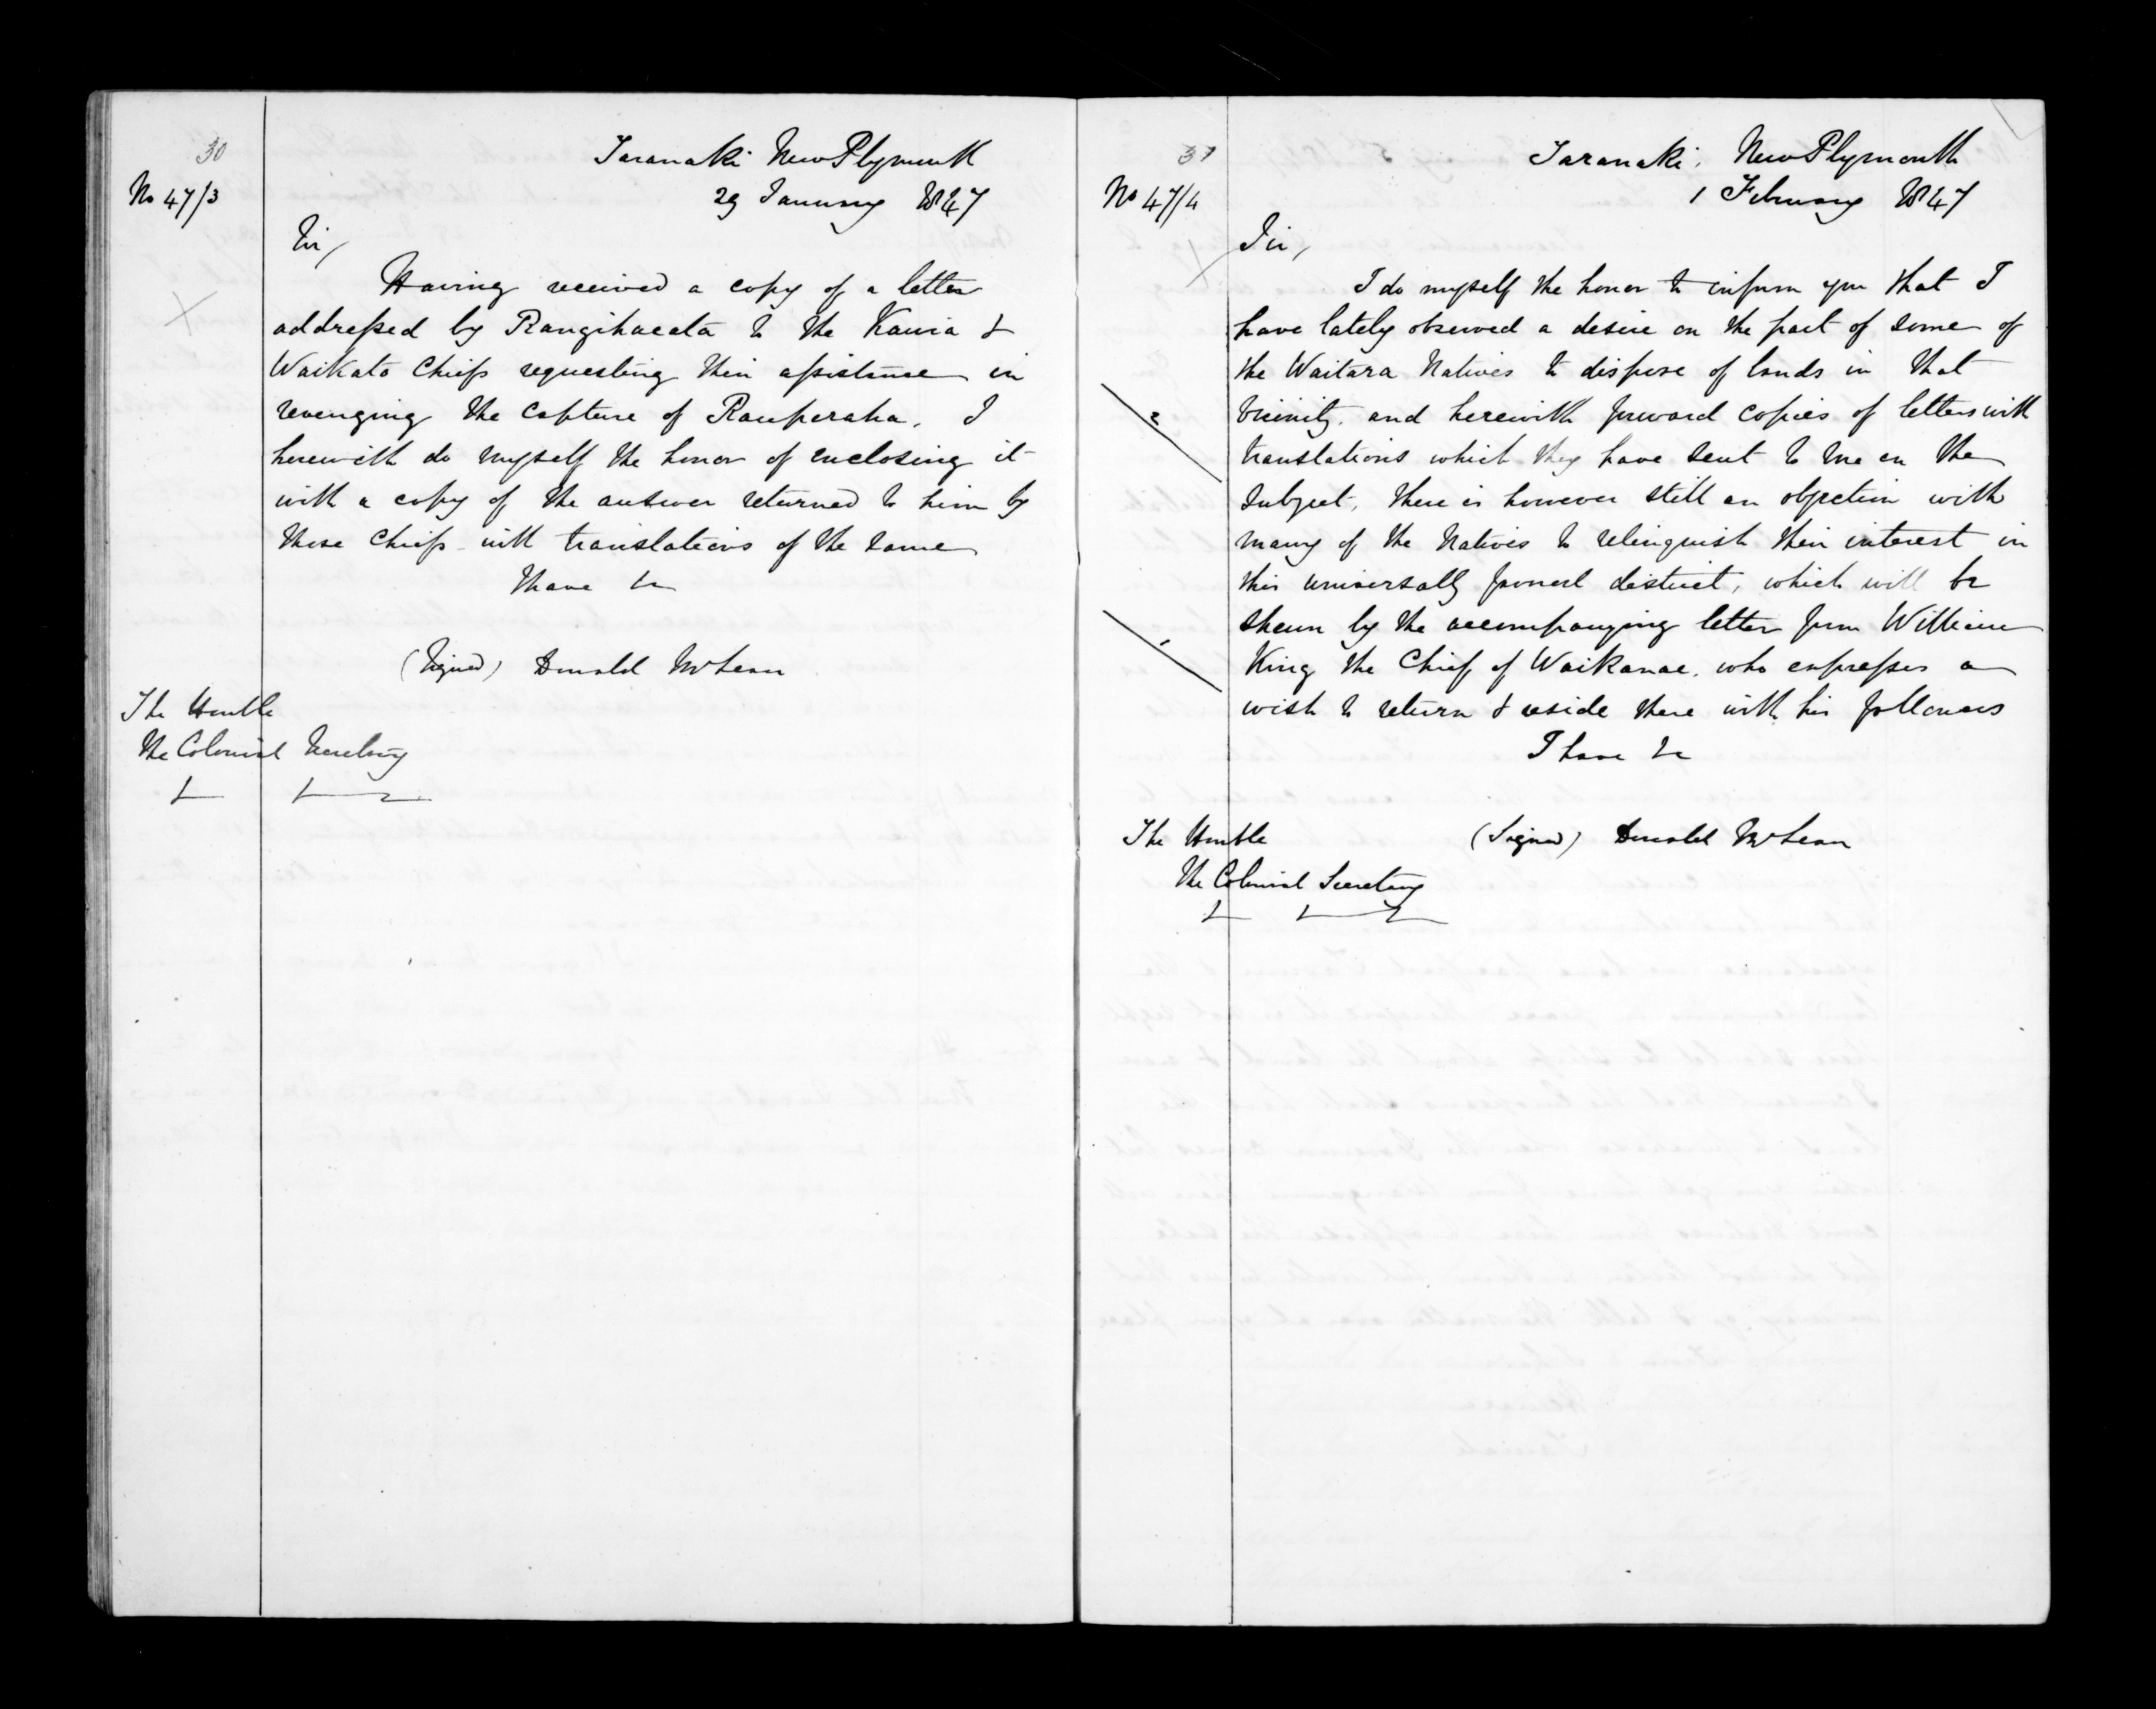 30
No 47/3
Taranaki New Plymouth
29 January 1847
Sir,
Having received a copy of a letter
addressed by Rangihaeata to the Kawia &
Waikato Chiefs requesting their assistance in
revenging the capture of Rauperaha. I
herewith do myself the honor of enclosing it
with a copy of the answer returned to him by
these Chiefs with translations of the same
I have &c
(Signed) Donald McLean
The Honble
The Colonial Secretary
&c &c
31
No 47/4
Taranaki, New Plymouth
1 February 1847
Sir,
I do myself the honor to inform you that I
have lately observed a desire on the part of some of
the Waitara Natives to dispose of lands in that
2
vicinity. and herewith forward copies of letters with
translations which they have sent to me on the
subject, there is however still an objection with
many of the Natives to relinquish their interest in
this universally district, which will be
shewn by the accompanying letter from William
1
King the Chief of Waikanae. who expresses a
wish to return & reside there with his followers
I have &c
(Signed) Donald McLean
The Honble
The Colonial Secretary
&c &c